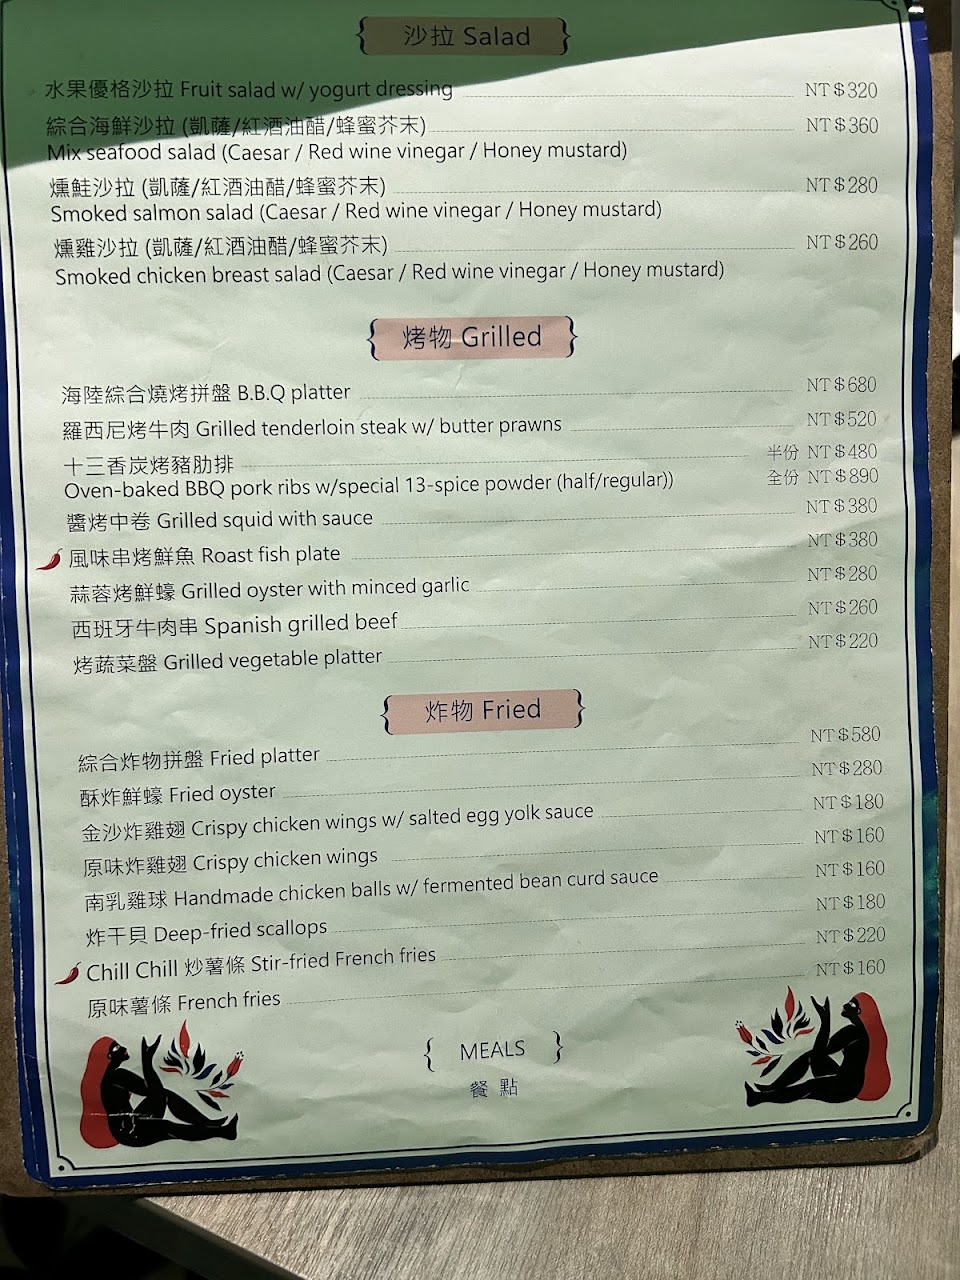 沙拉 Salad
水果優格沙拉 Fruit salad w/ yogurt dressing NT$320
綜合海鮮沙拉 (凱薩/紅酒油醋/蜂蜜芥末) NT$360
Mix seafood salad (Caesar / Red wine vinegar / Honey mustard)
燻鮭沙拉 (凱薩/紅酒油醋/蜂蜜芥末) NT$280
Smoked salmon salad (Caesar / Red wine vinegar / Honey mustard)
燻雞沙拉 (凱薩/紅酒油醋/蜂蜜芥末) NT$260
Smoked chicken breast salad (Caesar / Red wine vinegar / Honey mustard)
烤物 Grilled
海陸綜合燒烤拼盤 B.B.Q platter NT$680
羅西尼烤牛肉 Grilled tenderloin steak w/ butter prawns NT$520
十三香炭烤豬肋排 半份 NT$480
Oven-baked BBQ pork ribs w/special 13-spice powder (half/regular)) 全份 NT$890
醬烤中卷 Grilled squid with sauce NT$380
風味串烤鮮魚 Roast fish plate NT$380
蒜蓉烤鮮蠔 Grilled oyster with minced garlic NT$280
西班牙牛肉串 Spanish grilled beef NT$260
烤蔬菜盤 Grilled vegetable platter NT$220
炸物 Fried
綜合炸物拼盤 Fried platter NT$580
酥炸鮮蠔 Fried oyster NT$280
金沙炸雞翅 Crispy chicken wings w/ salted egg yolk sauce NT$180
原味炸雞翅 Crispy chicken wings NT$160
南乳雞球 Handmade chicken balls w/ fermented bean curd sauce NT$160
炸干貝 Deep-fried scallops NT$180
Chill Chill 炒薯條 Stir-fried French fries NT$220
原味薯條 French fries NT$160
MEALS
餐 點